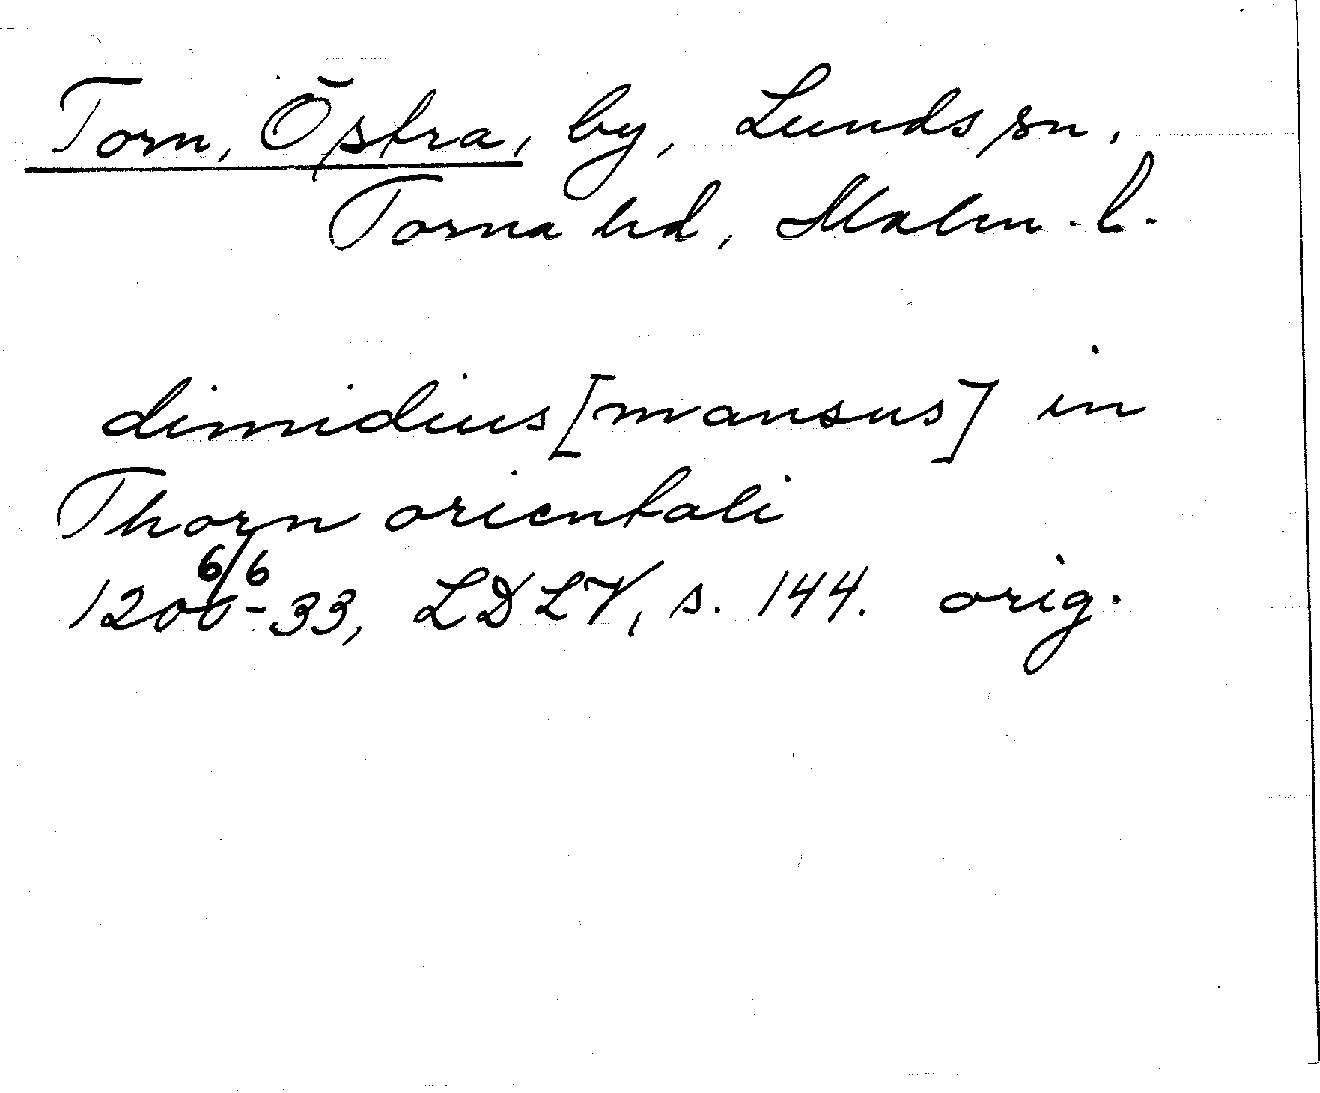 Torn, Östra, by, Lunds sn,
Torna hd, Malm. l.
dimidius [mansus] in
Thorn orientali
6/6
1200-33, LDLV, s. 144. orig.